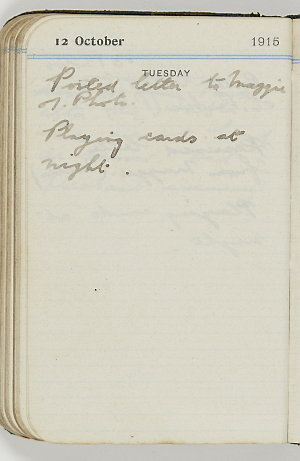 12 October 1915
TUESDAY
Posted letter to Maggie
& Photo.
Playing cards at
night.